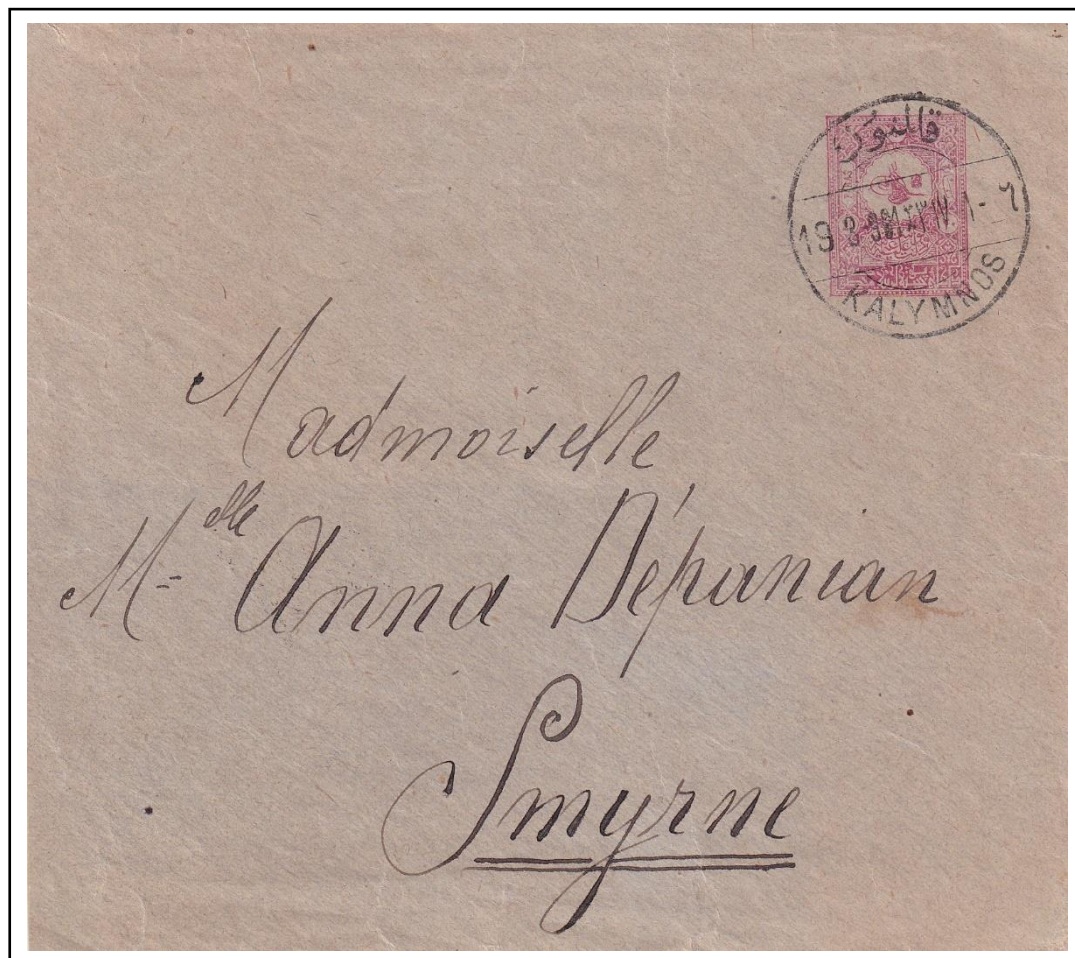 قالنموز
KALYMNOS
Madmoiselle
Melle Anna Dépanian
Smyrne